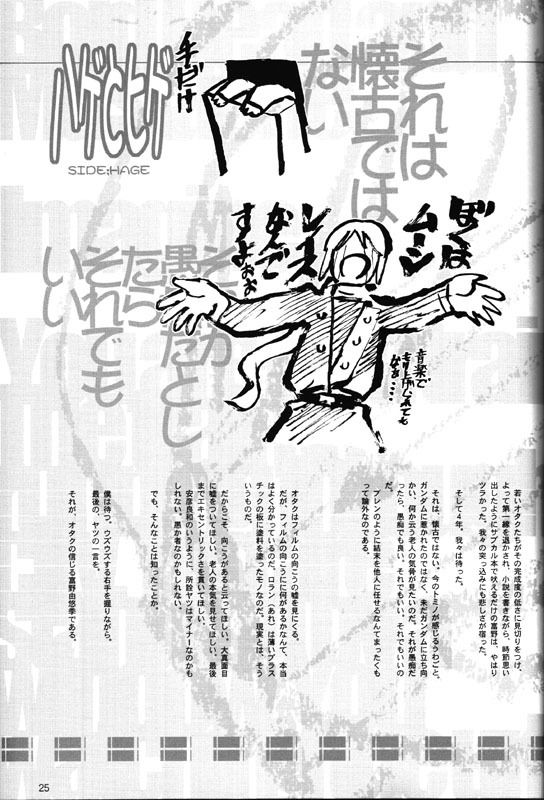 それは
懐古では
ない
手だけ
ハゲとヒゲ
SIDE;HAGE
ぼくは
ムーン
レイス
なんで
すよぉぉ
音楽で
もり上げられても
なぁ…
それが
愚かだとし
たら
それでも
いい
若いオタクたちがその完成度の低さに見切りをつけ、
よって第一線を退かされ、小説を書きながら、時節思い
出したようにサブカル本で吠えるだけの富野は、やはり
ツラかった。我々の突っ込みにも悲しさが宿った。
そして4年、我々は待った。
それは、懐古ではない。今のトミノが感じるうわごと、
ガンダムに惹かれたのではなく、未だガンダムに立ち向
かい、何か云う老人の気骨が見たいのだ。それが愚痴だ
ったら、愚痴でも良い。それでもいい、それでもいいの
だ。
ブレンのように結末を他人に任せるなんてまったくも
って論外なのである。
オタクはフィルムの向こうの嘘を見にくる。
だが、フィルムの向こうに何があるかなんて、本当
はよく分かっているのだ。ロラン（あれ）は薄いプラス
チックの板に塗料を塗ったモノなのだ。現実とは、そう
いうものだ。
だからこそ、向こうがあると云ってほしい。大真面目
に嘘をついてほしい。老人の本気を見せてほしい。最後
までエキセントリックさを貫いてほしい。
安彦良和のいうように、所詮ヤツはマイナー1なのかも
しれない。愚か者なのかもしれない。
でも、そんなことは知ったことか。
僕は待つ。ウズウズする右手を握りながら。
最後の、ヤツの一言を。
それが、オタクの信じる富野由悠季である。
25